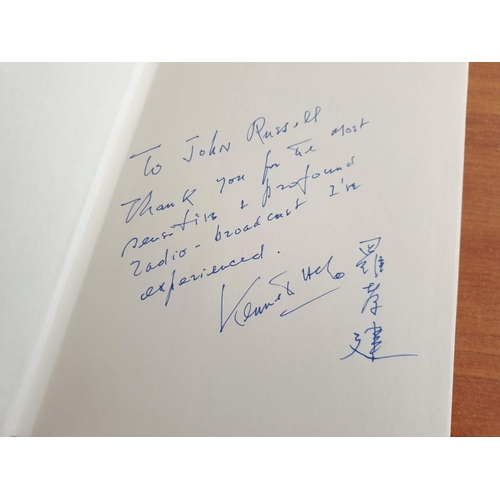 To John Russell
Thank you for the most
sensitive & profound
radio-broadcast I've
experienced.
Kenneth Lo
羅孝建